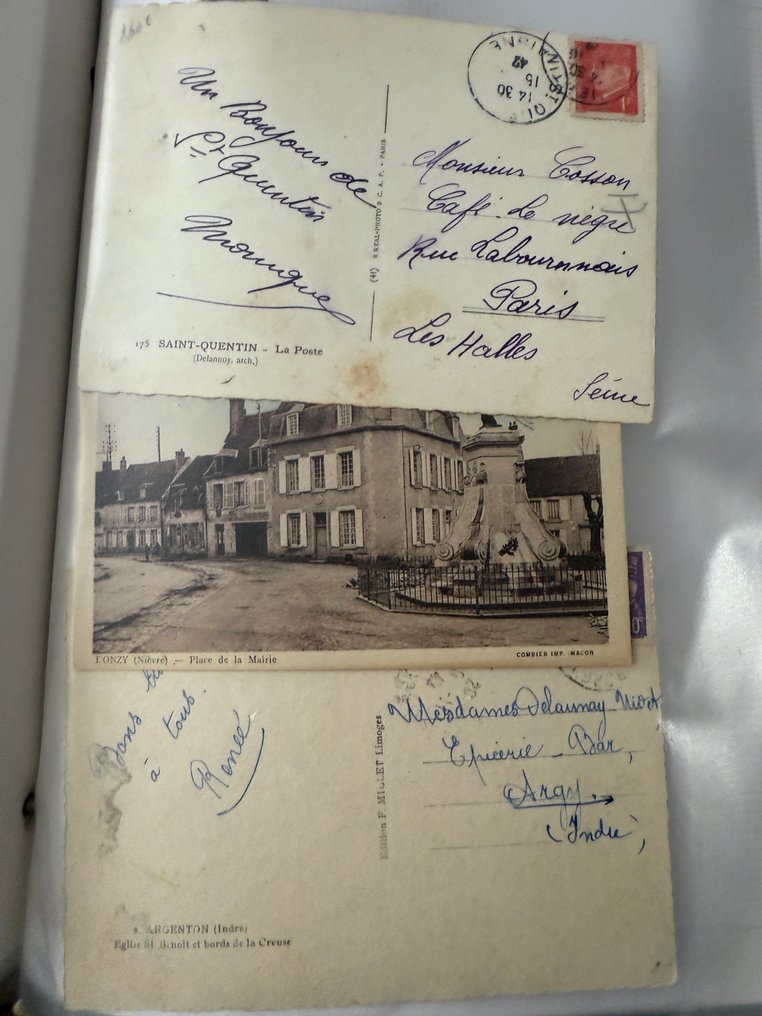 1.60€
ST QUENTIN
AISNE
14 30
15
42
Un Bonjour de
St Quentin
Monique
(41) REAL-PHOTO C.A.P. - PARIS
Monsieur Cosson
Café. Le nègre
Rue Labournnais
Paris
Les Halles
Seine
175 SAINT-QUENTIN - La Poste
(Delannoy, arch.)
DONZY (Nièvre) .— Place de la Mairie
COMBIER IMP. MACON
à tous.
Renée
Edition F. MICLET Limoges
Mesdames Delaunay
Epicerie - Bar,
Argy.
(Indre)
ARGENTON (Indre)
Eglise St Benoit et bords de la Creuse